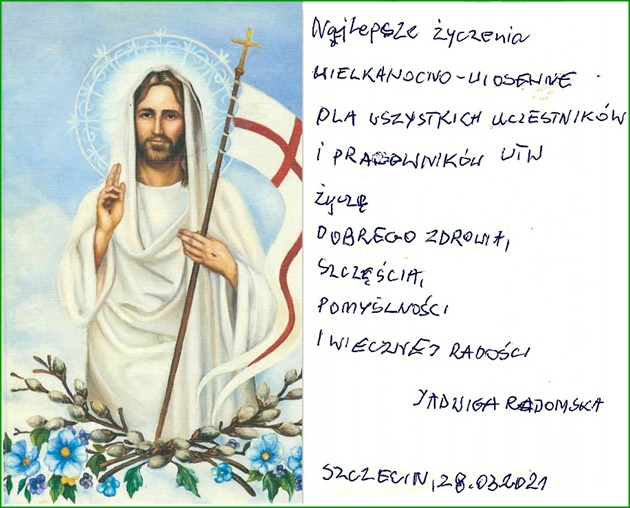 Najlepsze życzenia
WIELKANOCNO-WIOSENNE
DLA WSZYSTKICH UCZESTNIKÓW
I PRACOWNIKÓW UTW
życzę
DOBREGO ZDROWIA,
SZCZĘŚCIA,
POMYŚLNOŚCI
I WIECZNEJ RADOŚCI
JADWIGA RADOMSKA
SZCZECIN, 28.03.2021